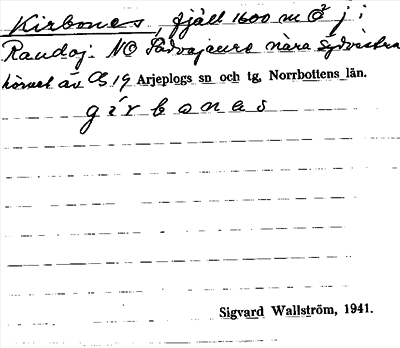 Kirbones, fjäll 1600 m Ö j i
Randoj. NO Padvajaure nära sydvästra
hörnet av CS 19 Arjeplogs sn och tg, Norrbottens län.
girbonas
Sigvard Wallström, 1941.